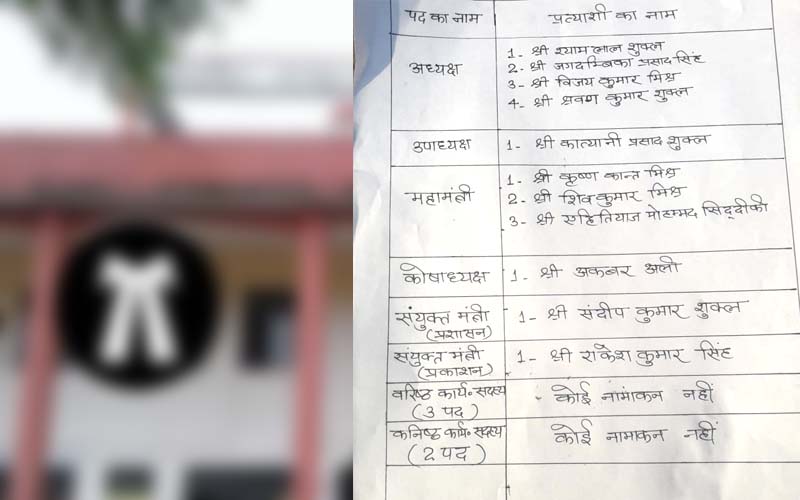 पद का नाम प्रत्याशी का नाम
अध्यक्ष
1- श्री श्याम लाल शुक्ल
2- श्री जगदम्बिका प्रसाद सिंह
3- श्री विजय कुमार मिश्र
4- श्री श्रवण कुमार शुक्ल
उपाध्यक्ष 1- श्री कात्यानी प्रसाद शुक्ल
महामंत्री
1- श्री कृष्ण कान्त मिश्र
2- श्री शिव कुमार मिश्र
3- श्री एहतियाज मोहम्मद सिद्दीकी
कोषाध्यक्ष 1- श्री अकबर अली
संयुक्त मंत्री 1- श्री संदीप कुमार शुक्ल
(प्रशासन)
संयुक्त मंत्री 1- श्री राकेश कुमार सिंह
(प्रकाशन)
वरिष्ठ कार्य० सदस्य - कोई नामांकन नहीं
(3 पद)
कनिष्ठ कार्य० सदस्य कोई नामाकन नहीं
(2 पद)